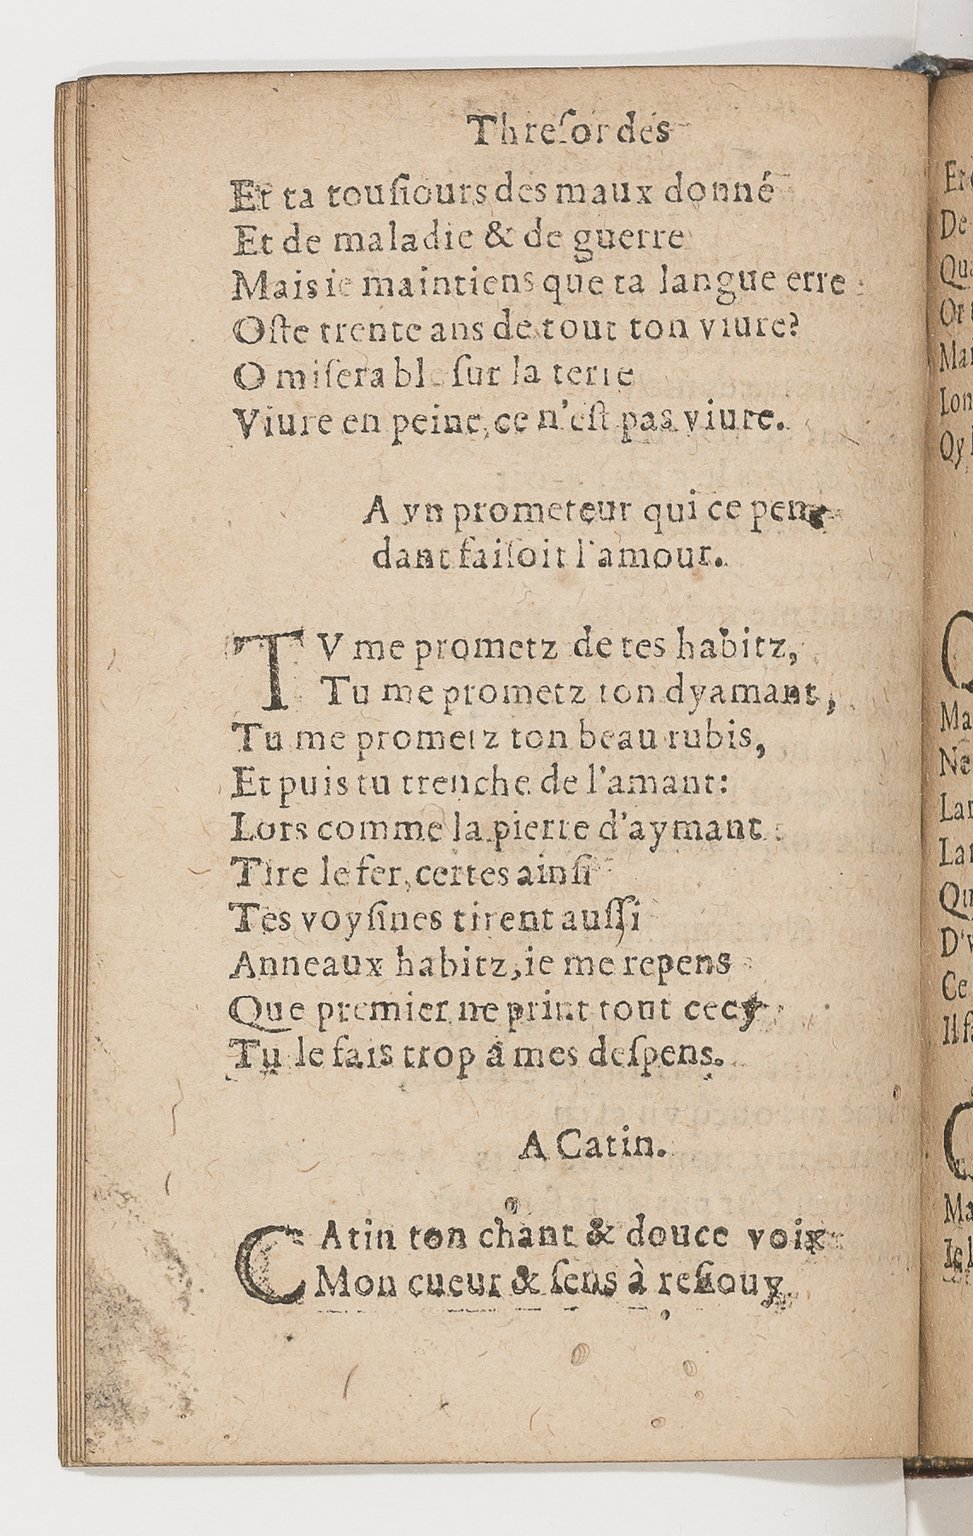 Threſor des
Et ta touſiours des maux donné
Et de maladie & de guerre
Mais ie maintiens que ta langue erre
Oſte trente ans de tout ton viure?
O miſerable ſur la terre
Viure en peine, ce n'eſt pas viure.
A vn prometeur qui ce pen-
dant faiſoit l'amour.
TV me prometz de tes habitz,
Tu me prometz ton dyamant,
Tu me prometz ton beau rubis,
Et puis tu trenche de l'amant:
Lors comme la pierre d'aymant
Tire le fer, certes ainſi
Tes voyſines tirent auſſi
Anneaux habitz, ie me repens
Que premier ne print tout cecy
Tu le fais trop à mes deſpens.
A Catin.
CAtin ton chant & douce voix
Mon cueur & ſens à reſiouy
Et
De
Qua
Or
Mai
Ion
Qy
Ma
Ne
Lar
Lar
Qu
D'v
Ce
Il
Ma